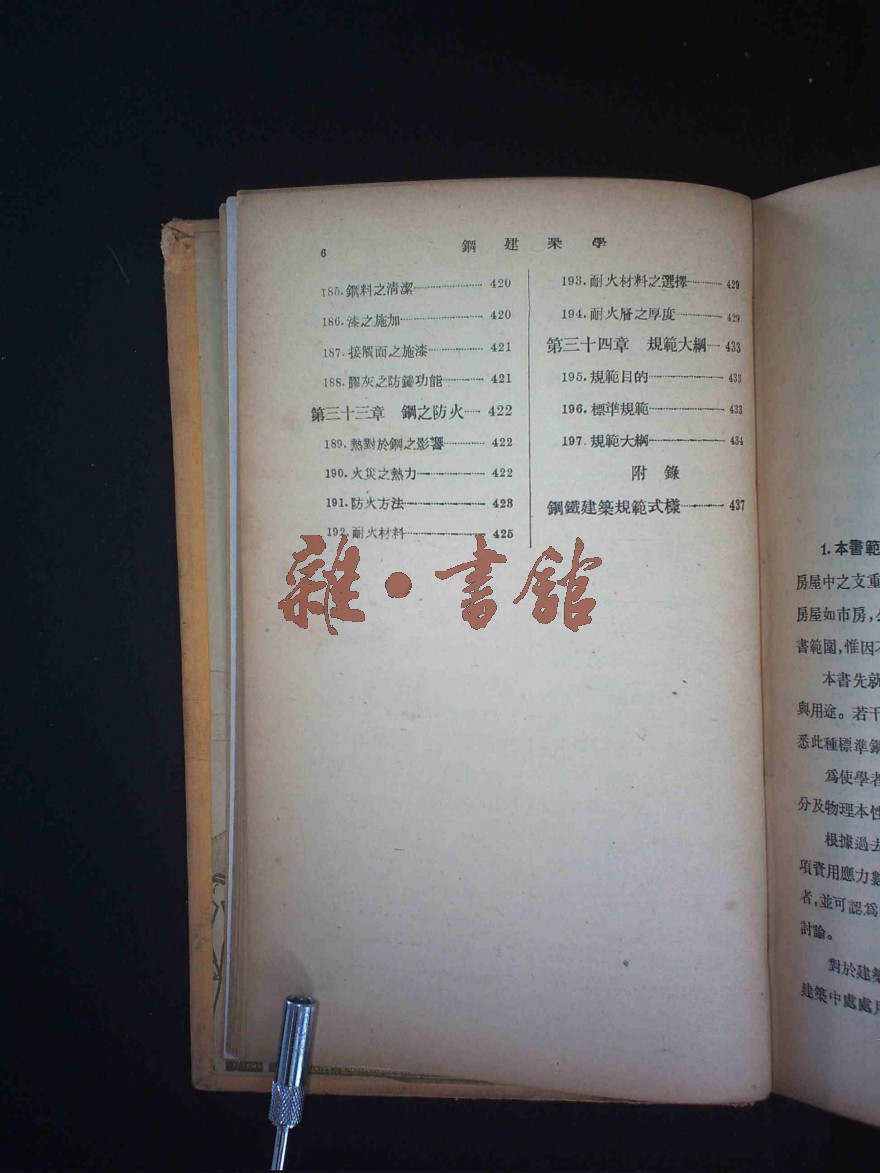 6
鋼建築學
185. 鋼料之清潔 420
186. 漆之施加 420
187. 接觸面之施漆 421
188. 膠灰之防鏽功能 421
第三十三章 鋼之防火 422
189. 熱對於鋼之影響 422
190. 火災之熱力 422
191. 防火方法 423
192. 耐火材料 425
193. 耐火材料之選擇 429
194. 耐火層之厚度 429
第三十四章 規範大綱 433
195. 規範目的 433
196. 標準規範 433
197. 規範大綱 434
附錄
鋼鐵建築規範式樣 437
雜·書館
1. 本書範
房屋中之支重
房屋如市房,
書範圍,惟因
本書先就
與用途。若干
悉此種標準鋼
爲使學者
分及物理本性
根據過去
項資用應力
者,並可認爲
討論。
對於建築
建築中處處